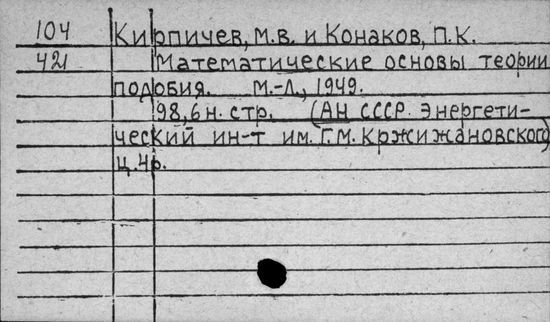 104 Кирпичев, М.В. и Конаков, П.К.
421 Математические основы теории
подобия. М.-Л., 1949.
98,6 н. стр. (АН СССР. Энергети-
ческий ин-т им. Г.М. Кржижановского)
ц. 4р.